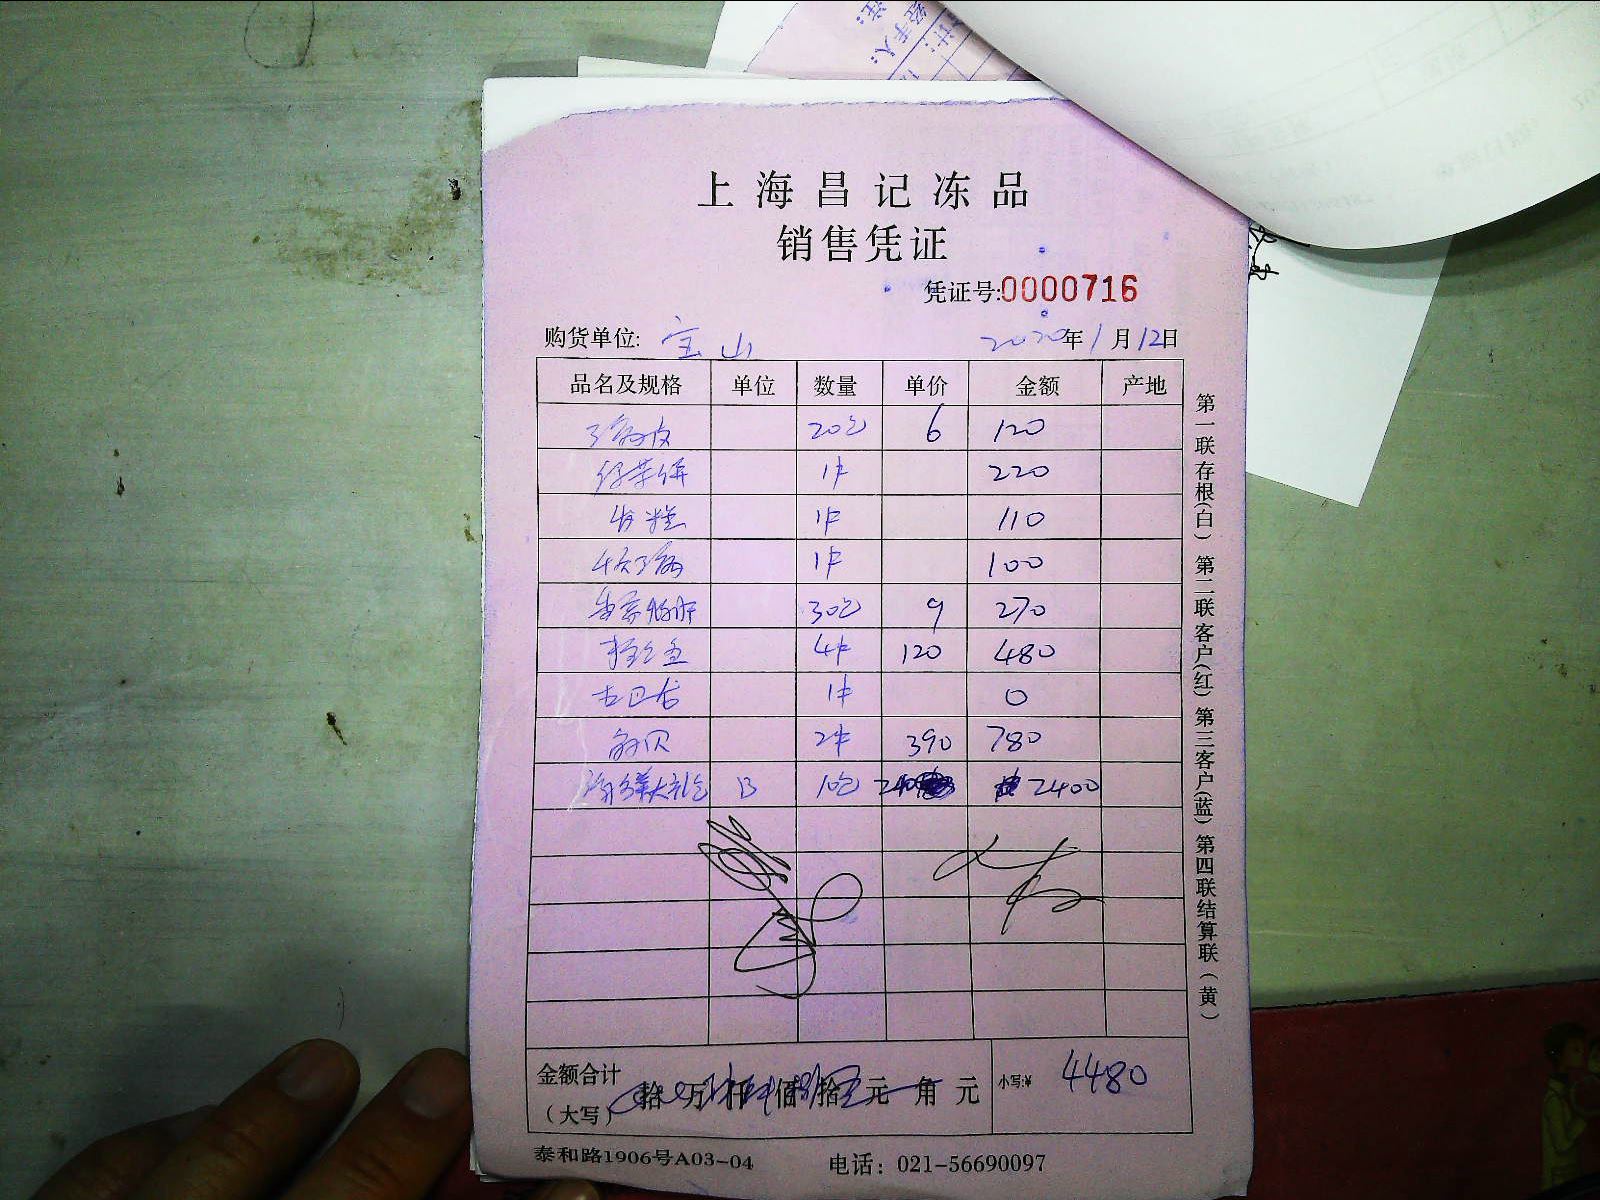 上海昌记冻品
销售凭证
凭证号:0000716
购货单位: 宝山 2020年1月12日
品名及规格 单位 数量 单价 金额 产地
20包 6 120
1件 220
发糕 1件 110
1件 100
30包 9 270
4件 120 480
古巴龙 1件 0
2件 390 780
海鲜大礼包 B 10包 240 2400
金额合计
(大写) 拾 万 仟 佰 拾 元 角 元 小写:¥ 4480
泰和路1906号A03-04 电话：021-56690097
第一联存根(白) 第二联客户(红) 第三客户(蓝) 第四联结算联(黄)